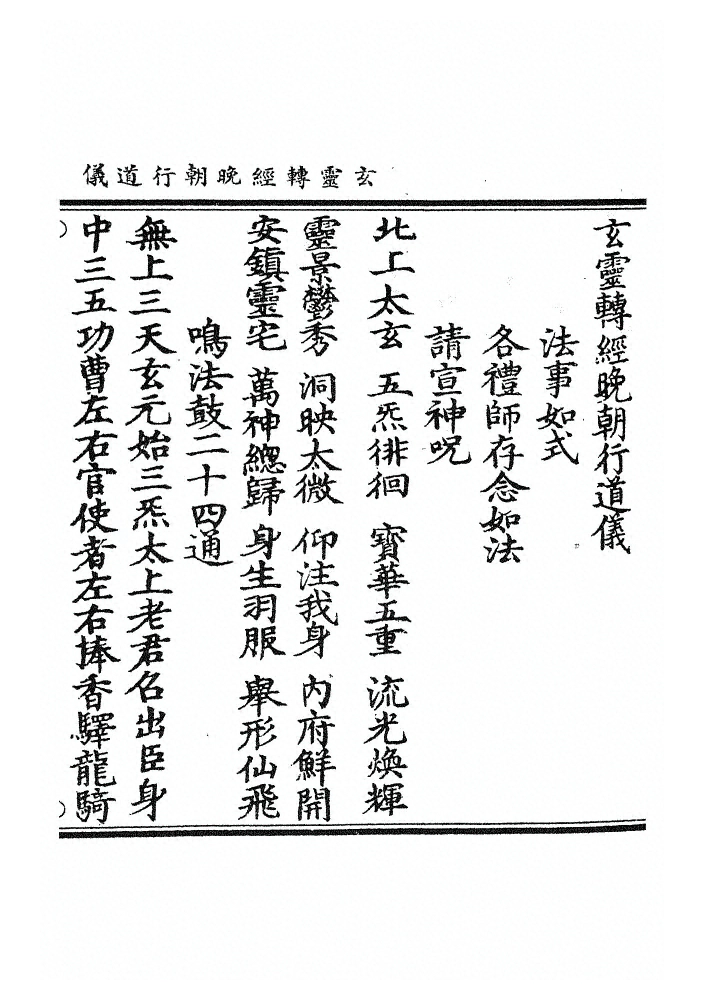 玄靈轉經晚朝行道儀
玄靈轉經晚朝行道儀
法事如式
各禮師存念如法
請宣神呪
北上太玄 五炁徘徊 寶華五重 流光煥輝
靈景鬱秀 洞映太微 仰注我身 內府鮮開
安鎮靈宅 萬神總歸 身生羽服 舉形仙飛
鳴法鼓二十四通
無上三天玄元始三炁太上老君召出臣身
中三五功曹左右官使者左右捧香驛龍騎